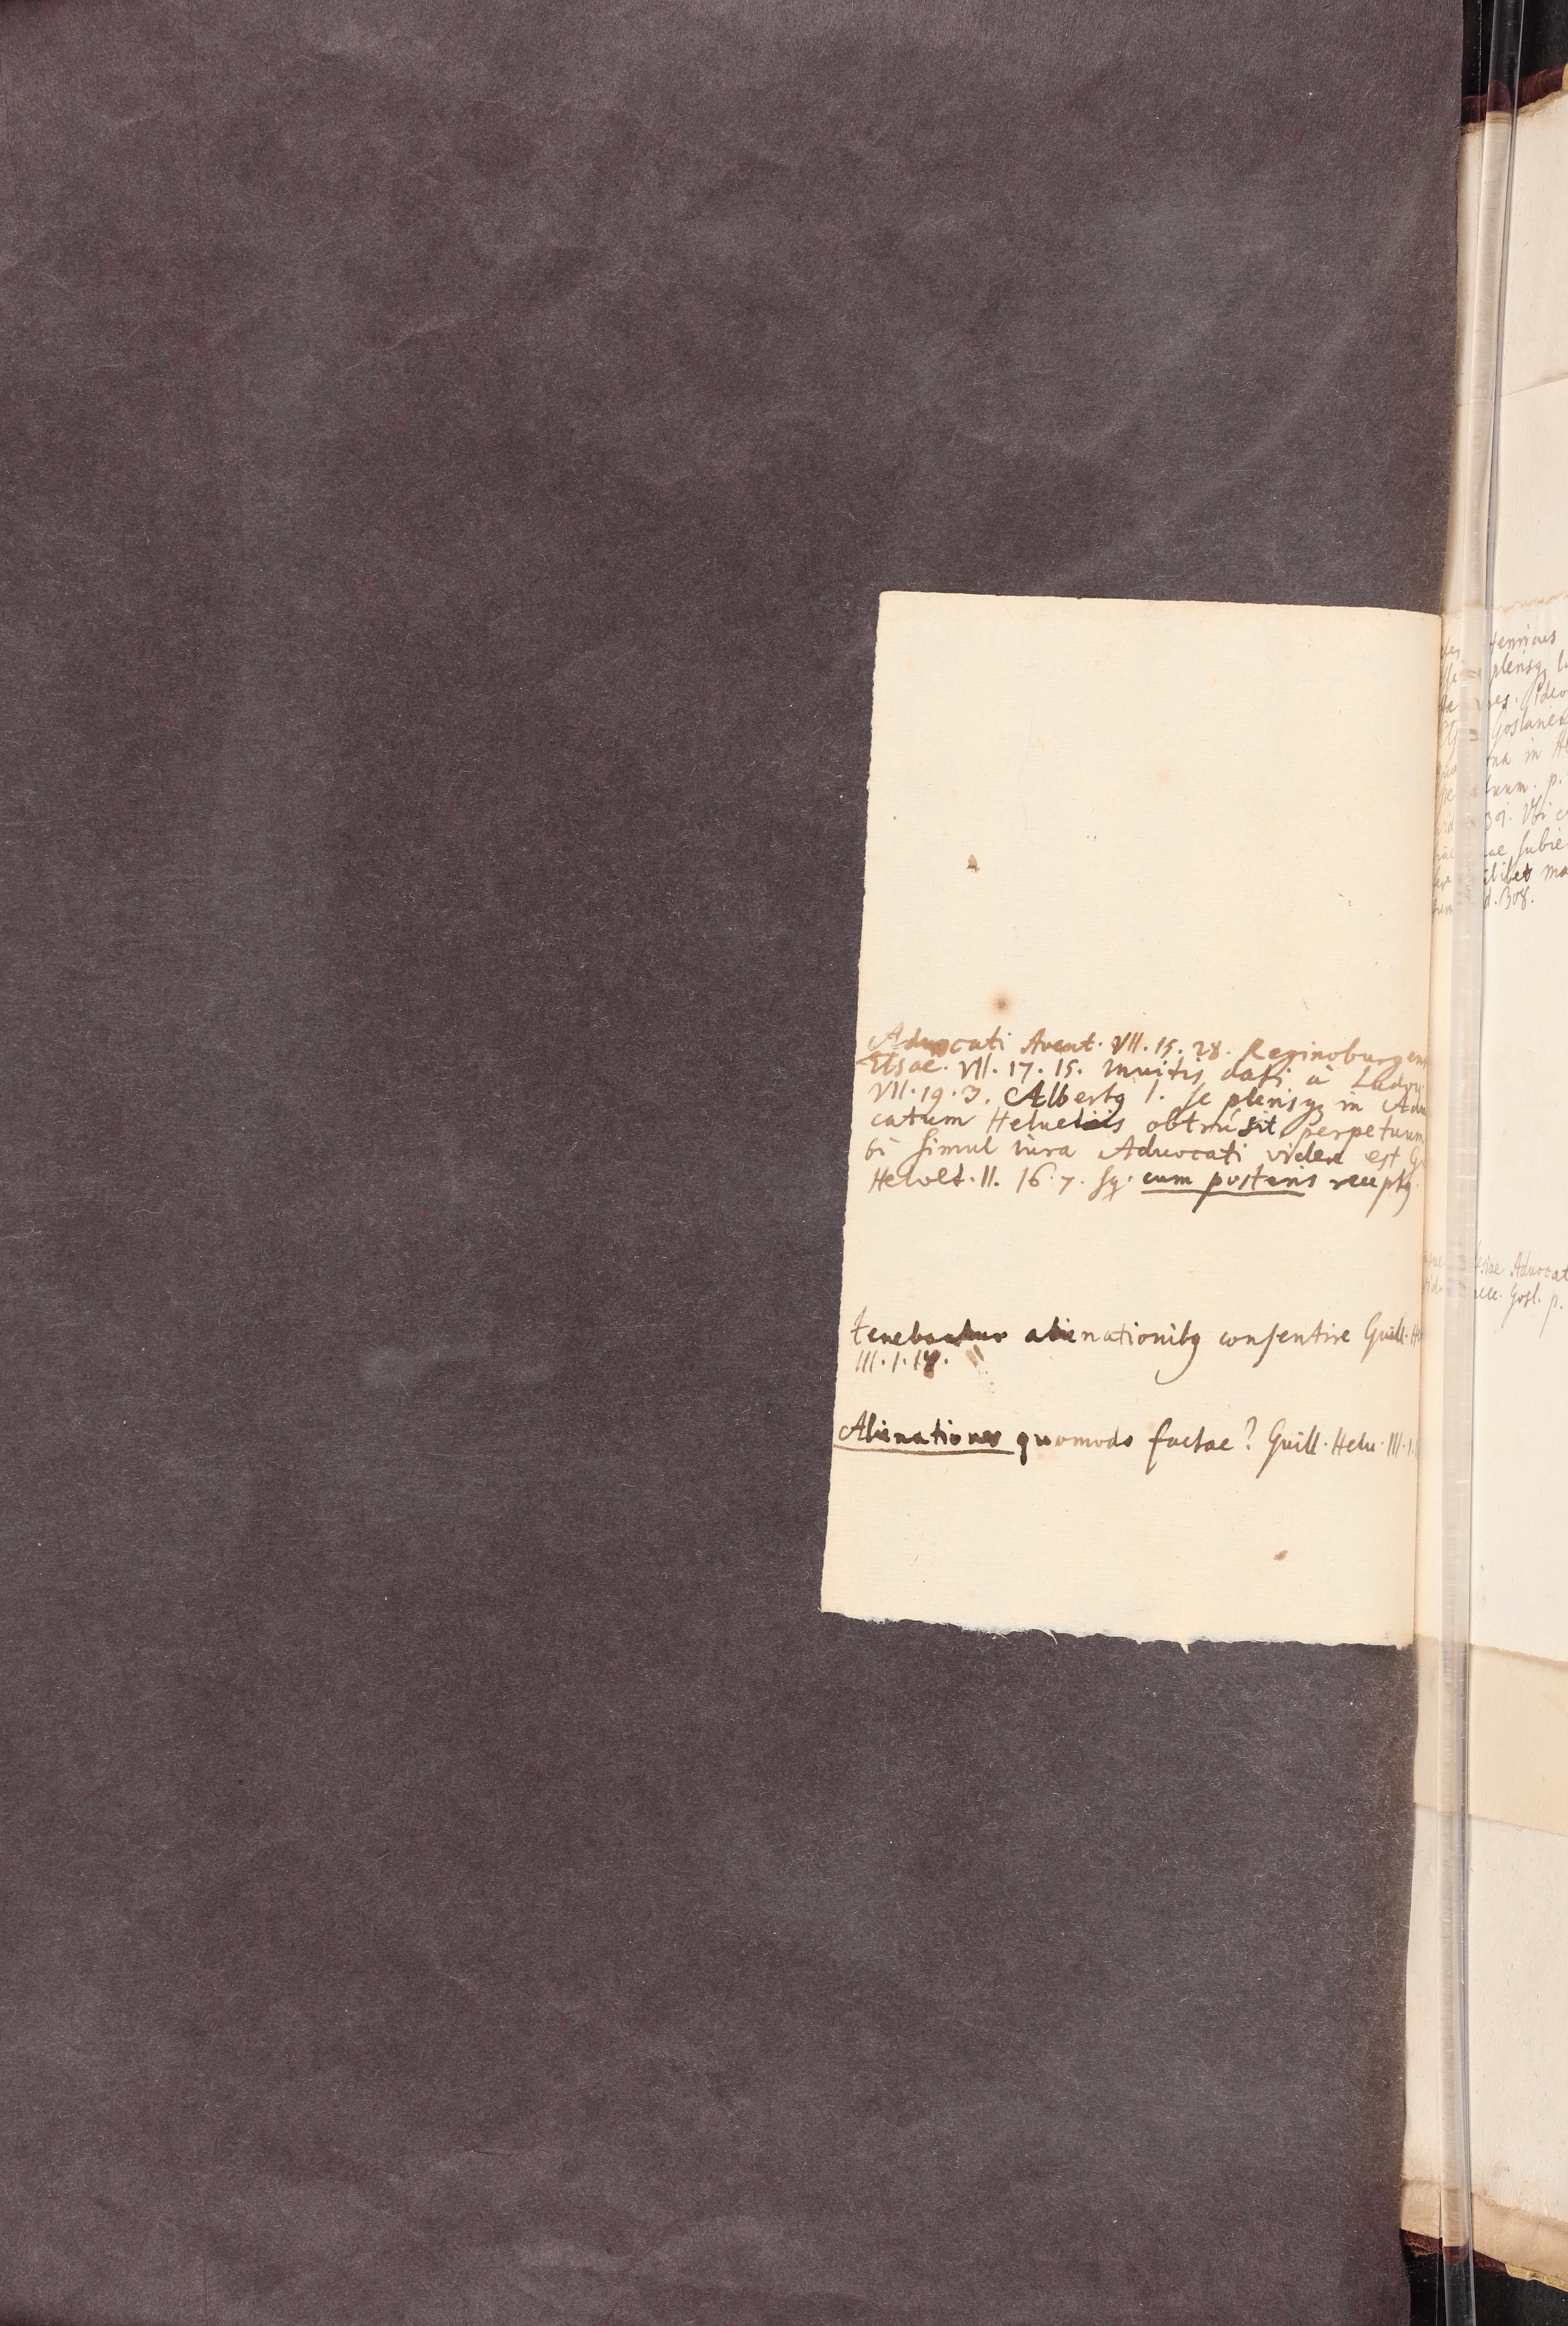 Advocati Avent. VII. 15. 28. Reginoburgen
Etsae. VII. 17. 15. inuitis dati à Ludov
VII. 19. 3. Albertq 1. se plerisqz in Adu
catum Helvetiis obtrusit perpetuum
bi simul iura Aduocati videre est G
Helvet. II. 16. 7. sq. cum posteris receptq.
tenebantur alienationibq consentire Guill. H
III. 1. 14.
Alienationes quomodo factae? Guill. Helv. III. 1.
Henricus
plerisqz
Goslanien
na in
p.
301. Vbi
ae subie
ilibet
d. 308.
siae Aduocat
Gosl. p.